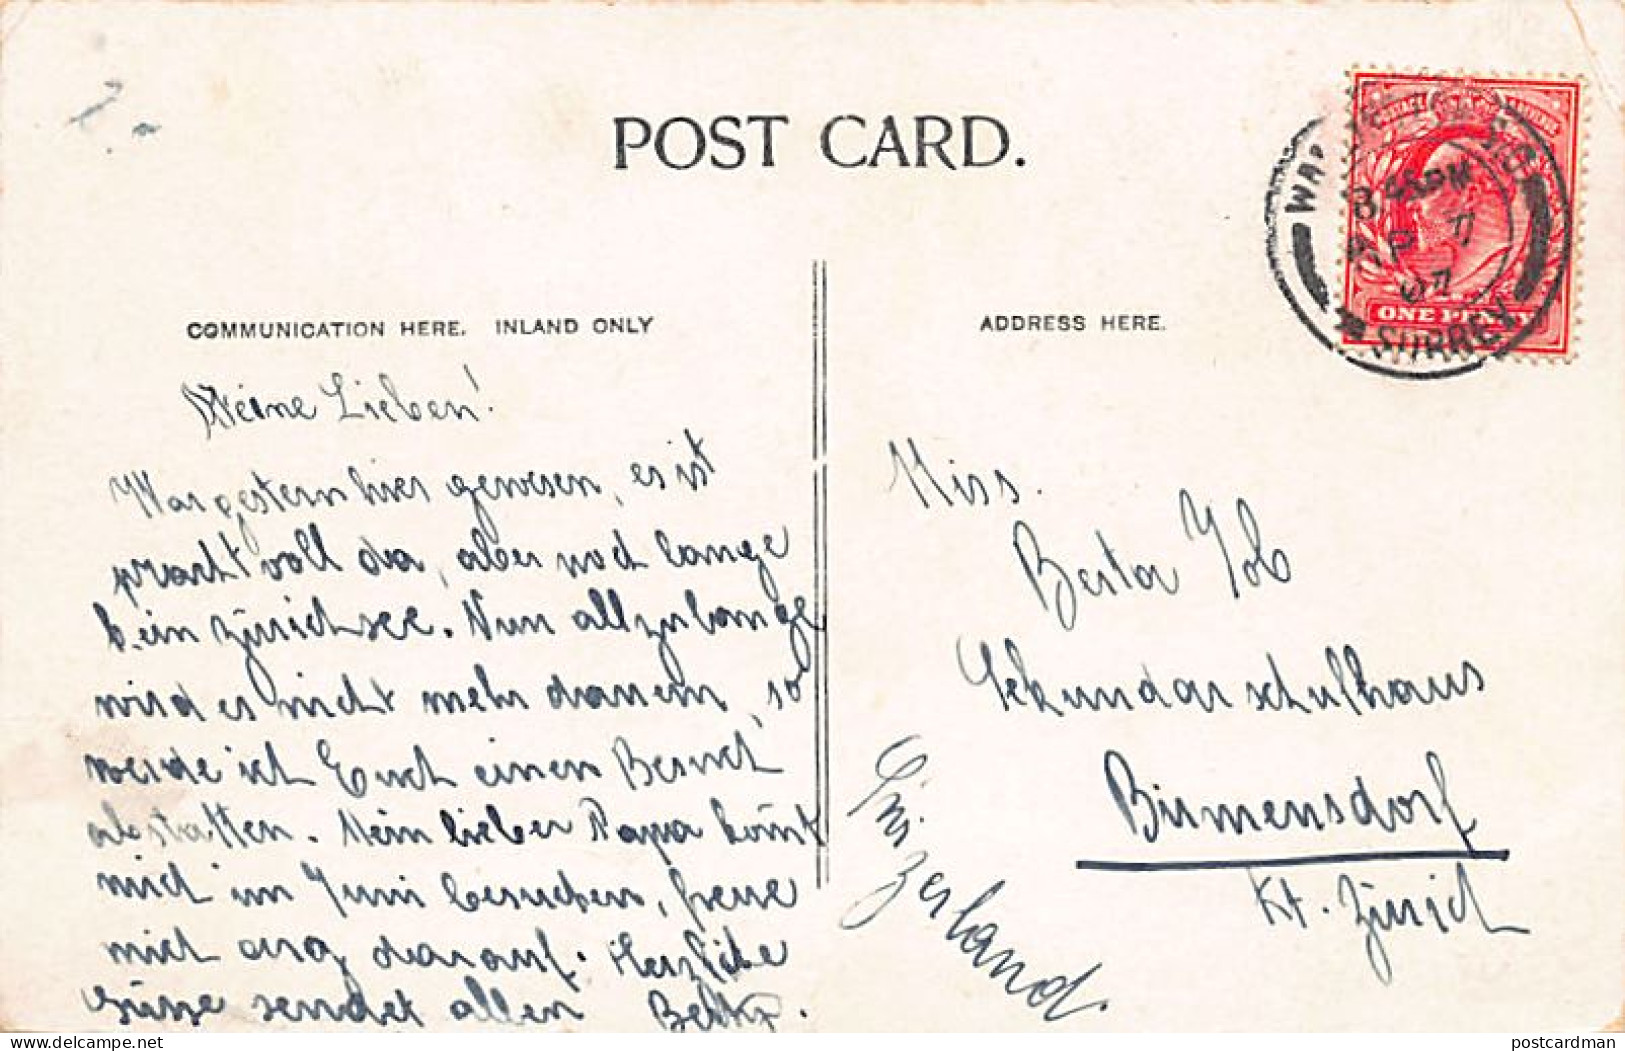 POST CARD.
COMMUNICATION HERE. INLAND ONLY
ADDRESS HERE.
8 45 PM
AP 7
07
SURREY
ONE PENNY
Meine Lieben!
War gestern hier gewesen, es ist
prachtvoll da, aber noch lange
kein Zürichsee. Nun allzulange
wird es nicht mehr dauern, so
werde ich Euch einen Besuch
abstatten. Mein lieber Papa kömt
mich im Juni besuchen, freue
mich arg darauf. Herzliche
Grüsse sendet allen
Miss.
Berta Job
Sekundarschulhaus
Birmensdorf
Kt. Zürich
postcardman